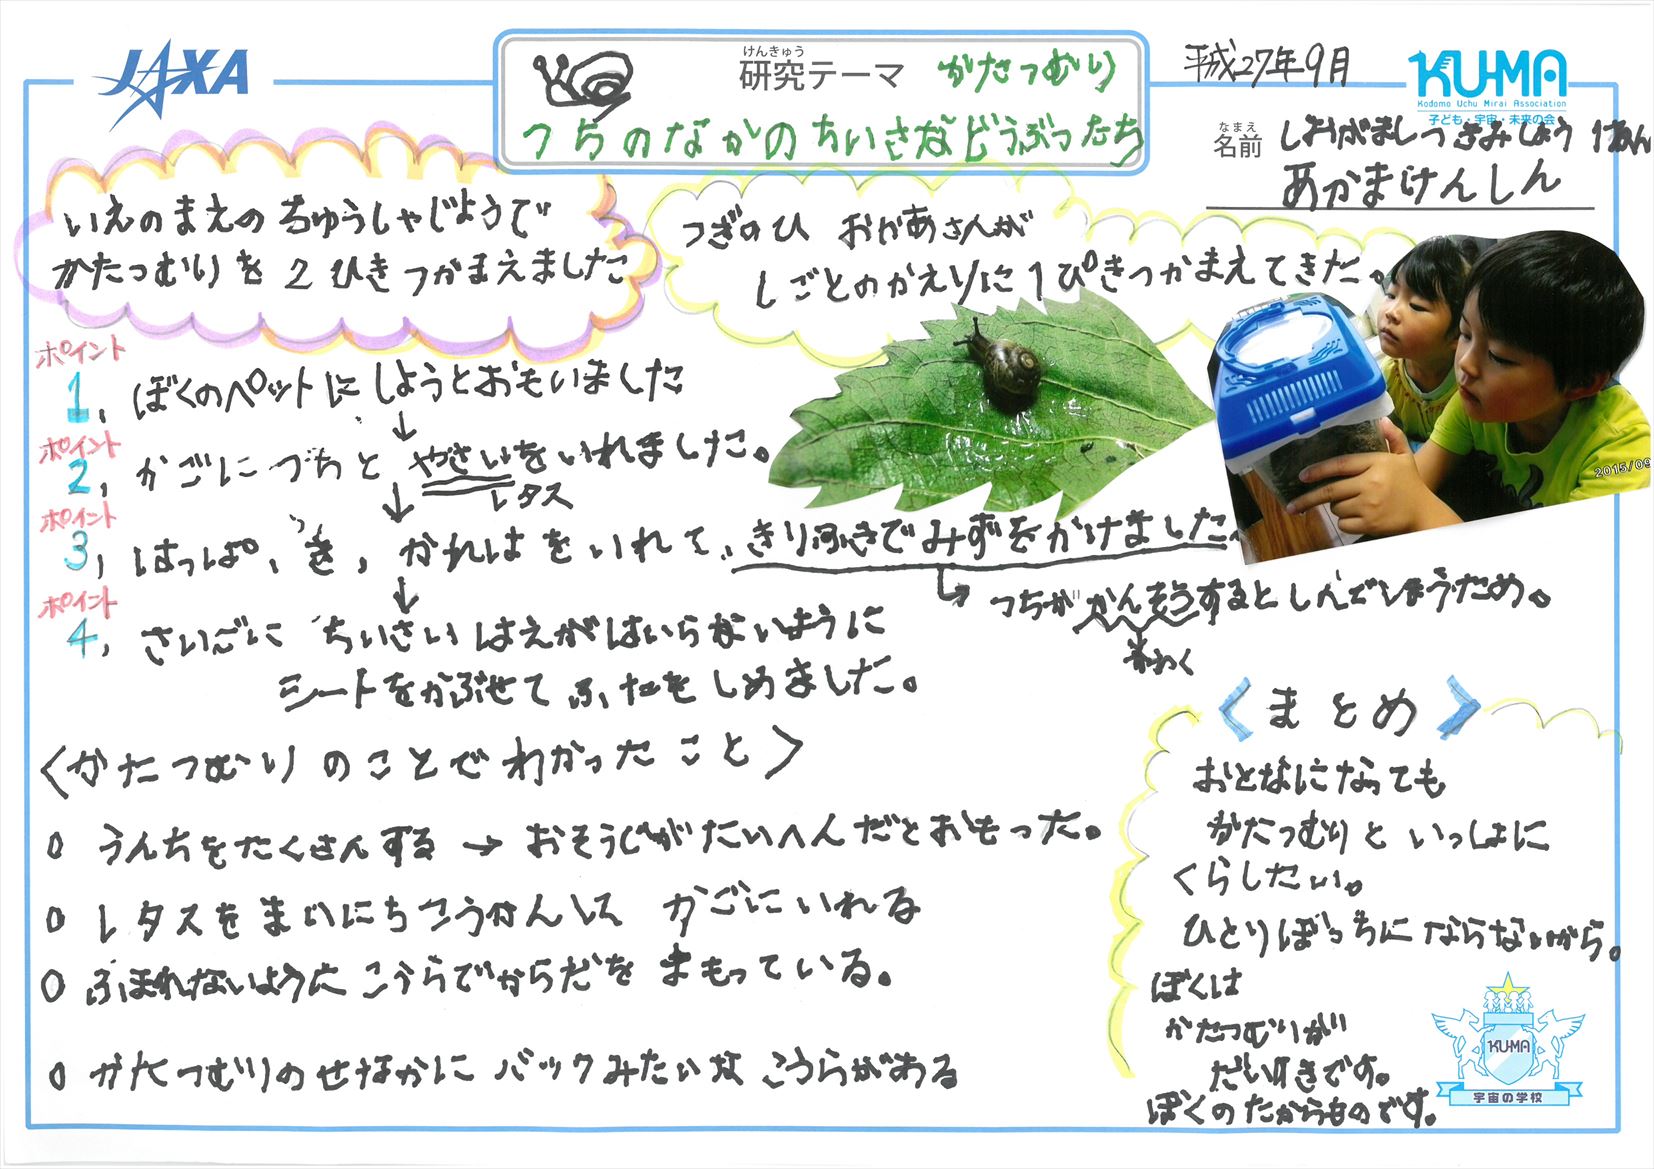 JAXA
けんきゅう
研究テーマ かたつむり
つちのなかのちいさなどうぶつたち
平成27年9月
KU-MA
Kodomo Uchu Mirai Association
子ども・宇宙・未来の会
なまえ
名前 しおがましつきみしょう
あかまけんしん
いえのまえの ちゅうしゃじょうで
かたつむりを 2 ひき つかまえました
つぎのひ おかあさんが
しごとのかえりに 1ぴきつかまえてきた。
ポイント
1, ぼくのペットに しようとおもいました
↓
ポイント
2, かごに つちと やさいをいれました。
↓ レタス
ポイント
3, はっぱ、き、かれはをいれて、きりふきでみずをかけました
つちがかんそうするとしんでしまうため。
かわく
↓
ポイント
4, さいごに ちいさい はえがはいらないように
シートをかぶせて ふたを しめました。
2015/09
〈かたつむりのことでわかったこと〉
○ うんちをたくさんする → おそうじがたいへんだとおもった。
○ レタスを まいにちこうかんして かごにいれる
○ ふまれないように こうらでからだを まもっている。
○ かたつむりのせなかに バックみたいな こうらがある
〈まとめ〉
おとなになっても
かたつむりと いっしょに
くらしたい。
ひとりぼっちに ならないから。
ぼくは
かたつむりが
だいすきです。
ぼくのたからものです。
KU-MA
宇宙の学校